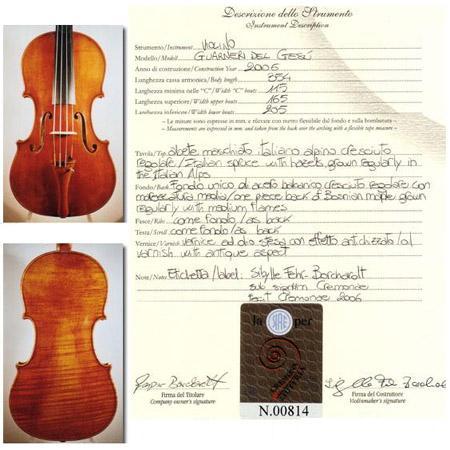 Descrizione dello Strumento
Instrument Description
Strumento/Instrument VIOLINO
Modello/Model GUARNERI DEL GESÙ
Anno di costruzione/Construction Year 2006
Lunghezza cassa armonica/Body length 354
Larghezza minima nelle "C"/Width "C" bouts 115
Larghezza superiore/Width upper bouts 165
Larghezza inferiore/Width lower bouts 205
– Le misure sono espresse in mm. e rilevate con metro flessibile dal fondo e sulla bombatura
– Measurements are expressed in mm. and taken from the back over the arching with a flexible tape measure –
Tavola/Top abete maschiato italiano alpino cresciuto
regolare/Italian sprice with hazels, grown regularly in
the Italian Alps
Fondo/Back Fondo unico di acero balcanico cresciuto regolare con
marezzatura media/one piece back of Bosnian maple, grown
regularly with medium flames
Fasce/Ribs come fondo/as back
Testa/Scroll come fondo/as back
Vernice/Varnish vernice ad olio stesa con effetto antichizzato/oil
varnish with antique aspect
Note/Notes Etichetta/label: Sibylle Fehr-Borchardt
sub signum Cremonae
fecit Cremonae 2006
la per
Gaspar Borchardt
Firma del Titolare
Company owner's signature
N.00814
Firma del Costruttore
Violinmaker's signature